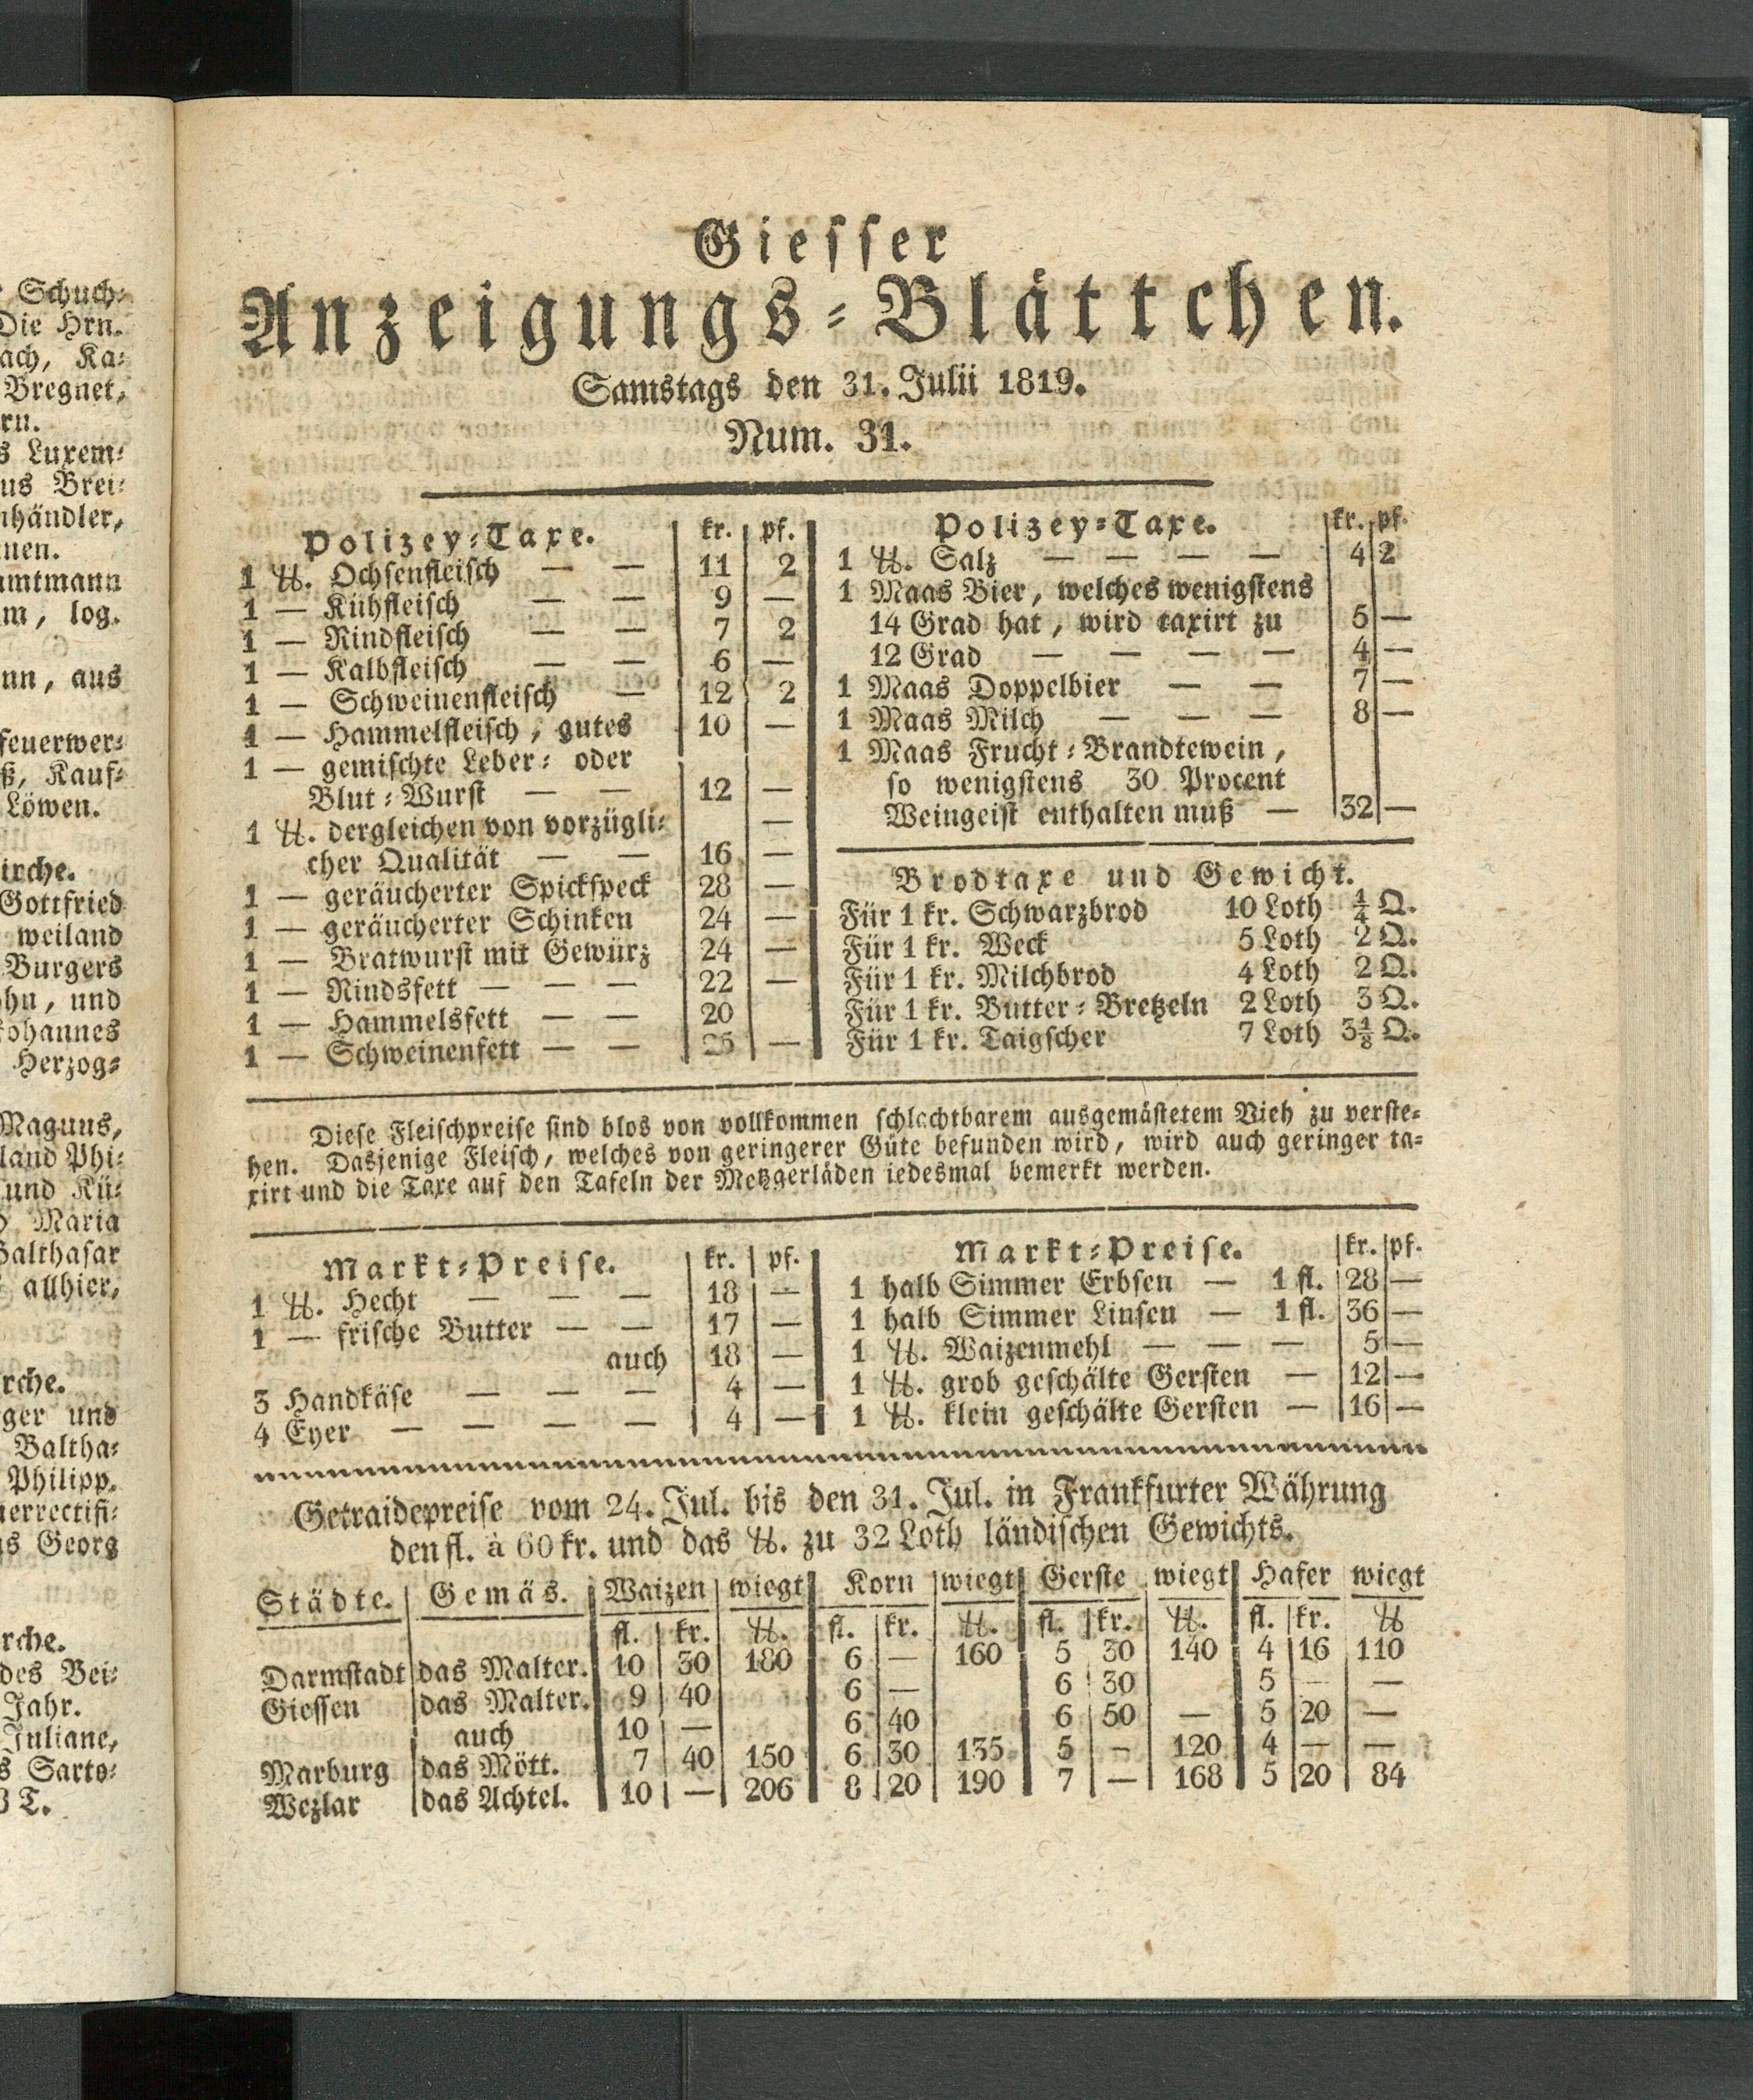 Schuch⸗
Die Hrn.
ach, Ka⸗
Bregnet,
rn.
s Luxem⸗
us Brei⸗
nhändler,
nen.
amtmann
m, log.
nn, aus
feuerwer⸗
ß, Kauf⸗
Löwen.
irche.
Gottfried
weiland
Burgers
ohn, und
Johannes
Herzog⸗
Magnus,
land Phi⸗
und Kü⸗
Maria
Balthasar
allhier,
rche.
ger und
Baltha⸗
Philipp.
ierrectifi⸗
as Georg
rche.
des Bei⸗
Jahr.
Juliane,
s Sarto⸗
B T.
Giesser
Anzeigungs⸗Blättchen.
Samstags den 31. Julii 1819.
Num. 31.
Polizey⸗Taxe. kr. pf.
1 ℔. Ochsenfleisch — — 11 2
1 — Kühfleisch — — 9 —
1 — Rindfleisch — — 7 2
1 — Kalbfleisch — — 6 —
1 — Schweinenfleisch — 12 2
1 — Hammelfleisch, gutes 10 —
1 — gemischte Leber⸗ oder
Blut⸗Wurst — — 12 —
1 ℔. dergleichen von vorzügli⸗ —
cher Qualität — — 16 —
1 — geräucherter Spickspeck 28 —
1 — geräucherter Schinken 24 —
1 — Bratwurst mit Gewürz 24 —
1 — Rindsfett — — — 22 —
1 — Hammelsfett — — 20
1 — Schweinenfett — — 25 —
Polizey⸗Taxe. kr. pf.
1 ℔. Salz — — — — 4 2
1 Maas Bier, welches wenigstens
14 Grad hat, wird taxirt zu 5 —
12 Grad — — — — 4 —
1 Maas Doppelbier — — 7 —
1 Maas Milch — — — 8 —
1 Maas Frucht⸗Brandtewein,
so wenigstens 30 Procent
Weingeist enthalten muß — 32 —
Brodtaxe und Gewicht.
Für 1 kr. Schwarzbrod 10 Loth ¼ Q.
Für 1 kr. Weck 5 Loth 2 Q.
Für 1 kr. Milchbrod 4 Loth 2 Q.
Für 1 kr. Butter⸗Bretzeln 2 Loth 3 Q.
Für 1 kr. Taigscher 7 Loth 3⅛ Q.
Diese Fleischpreise sind blos von vollkommen schlachtbarem ausgemästetem Vieh zu verste⸗
hen. Dasjenige Fleisch, welches von geringerer Güte befunden wird, wird auch geringer ta⸗
xirt und die Taxe auf den Tafeln der Metzgerläden iedesmal bemerkt werden.
Markt⸗Preise. kr. pf.
1 ℔. Hecht — — — 18 —
1 — frische Butter — — 17 —
auch 18 —
3 Handkäse — — — 4 —
4 Eyer — — — — 4 —
Markt⸗Preise. kr. pf.
1 halb Simmer Erbsen — 1 fl. 28 —
1 halb Simmer Linsen — 1 fl. 36 —
1 ℔. Waizenmehl — — — 5 —
1 ℔. grob geschälte Gersten — 12 —
1 ℔. klein geschälte Gersten — 16 —
Getraidepreise vom 24. Jul. bis den 31. Jul. in Frankfurter Währung
den fl. à 60 kr. und das ℔. zu 32 Loth ländischen Gewichts.
Städte. Gemäs. Waizen wiegt Korn wiegt Gerste wiegt Hafer wiegt
fl. kr. ℔. fl. kr. ℔. fl. kr. ℔. fl. kr. ℔
Darmstadt das Malter. 10 30 180 6 — 160 5 30 140 4 16 110
Giessen das Malter. 9 40 6 — 6 30 5 — —
auch 10 — 6 40 6 50 — 5 20 —
Marburg das Mött. 7 40 150 6 30 135 5 — 120 4 — —
Wezlar das Achtel. 10 — 206 8 20 190 7 — 168 5 20 84